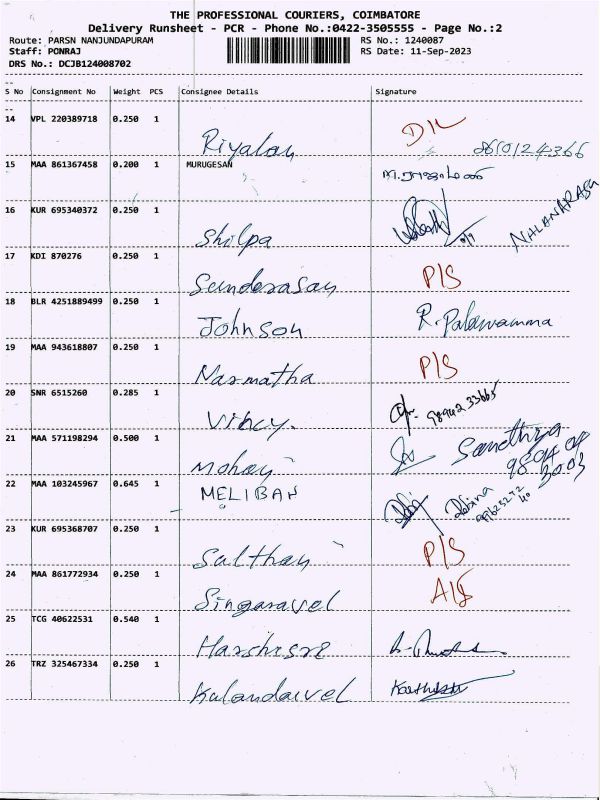 THE PROFESSIONAL COURIERS, COIMBATORE
Delivery Runsheet - PCR - Phone No.:0422-3505555 - Page No.:2
Route: PARSN NANJUNDAPURAM RS No.: 1240087
Staff: PONRAJ RS Date: 11-Sep-2023
DRS No.: DCJB124008702
S No Consignment No Weight PCS Consignee Details Signature
14 VPL 220389718 0.250 1
Riyalan
15 MAA 861367458 0.200 1 MURUGESAN
16 KUR 695340372 0.250 1 NALANARASU
Shilpa
17 KDI 870276 0.250 1 P/S
Sunderasan
18 BLR 4251889499 0.250 1
Johnson R. Palawamma
19 MAA 943618807 0.250 1 P/S
Narmatha
20 SNR 6515260 0.285 1 9894233665
Vincy.
21 MAA 571198294 0.500 1 Sandhya
Mohan
22 MAA 103245967 0.645 1
MELIBAN Debina
23 KUR 695368707 0.250 1 P/S
Sulthan
24 MAA 861772934 0.250 1 A/S
Singaravel
25 TCG 40622531 0.540 1
Harshisre
26 TRZ 325467334 0.250 1
Kulandaivel